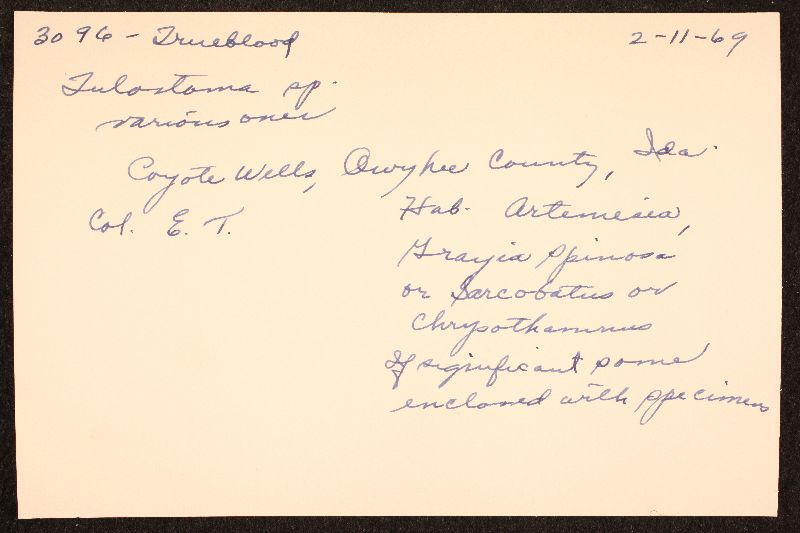 3096 - Trueblood 2-11-69
Tulostoma sp.
various ones
Coyote Wells, Owyhee County, Ida.
Col. E. T. Hab. Artemisia,
Grayia spinosa
or Sarcobatus or
Chrysothamnus
If significant some
enclosed with specimens